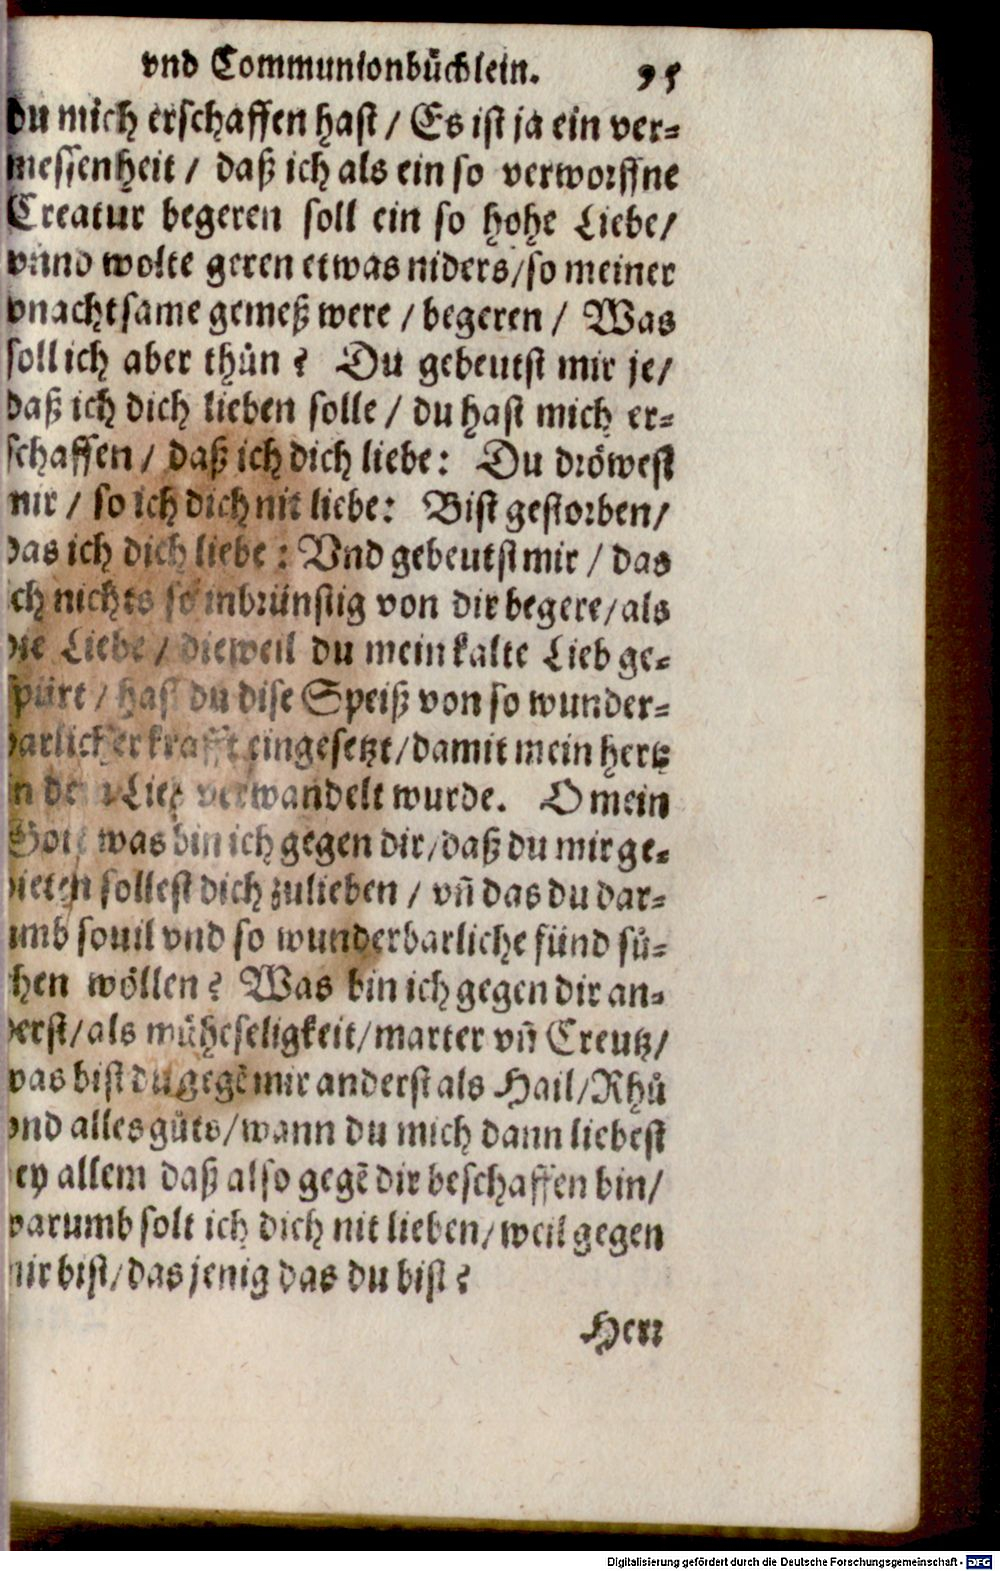 vnd Communionbuͤchlein. 95
du mich erschaffen hast / Es ist ja ein ver⸗
messenheit / daß ich als ein so verworffne
Creatur begeren soll ein so hohe Liebe /
vnnd wolte geren etwas niders / so meiner
vnachtsame gemeß were / begeren / Was
soll ich aber thuͤn? Du gebeutst mir je /
daß ich dich lieben solle / du hast mich er⸗
schaffen / daß ich dich liebe: Du droͤwest
mir / so ich dich nit liebe: Bist gestorben /
das ich dich liebe: Vnd gebeutst mir / das
ich nichts so inbruͤnstig von dir begere / als
die Liebe / dieweil du mein kalte Lieb ge⸗
spuͤrt / hast du dise Speiß von so wunder⸗
barlicher krafft eingesetzt / damit mein hertz
in dein Lieb verwandelt wurde. O mein
Gott was bin ich gegen dir / daß du mir ge⸗
bieten sollest dich zulieben / vñ das du dar⸗
umb souil vnd so wunderbarliche fuͤnd suͦ⸗
chen woͤllen? Was bin ich gegen dir an⸗
derst / als muͤheseligkeit / marter vñ Creutz /
was bist du gegẽ mir anderst als Hail / Rhuͦ
vnd alles guͦts / wann du mich dann liebest
bey allem daß also gegẽ dir beschaffen bin /
warumb solt ich dich nit lieben / weil gegen
mir bist / das jenig das du bist?
Herr
Digitalisierung gefördert durch die Deutsche Forschungsgemeinschaft - DFG